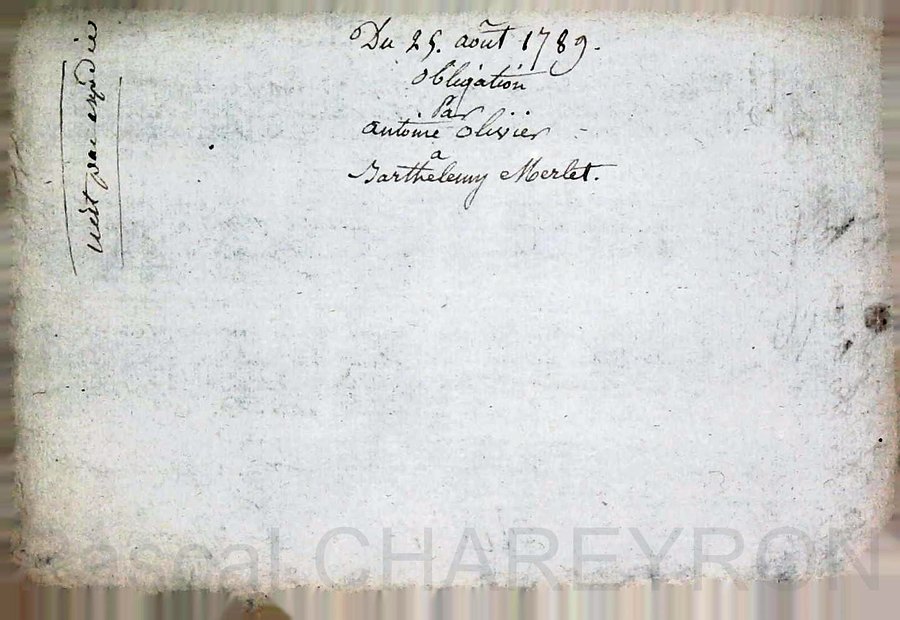 Du 25. août 1789.
obligation
Par
antoine olivier
a
Barthelemy Merlet.
n'est pas expédié
Pascal CHAREYRON